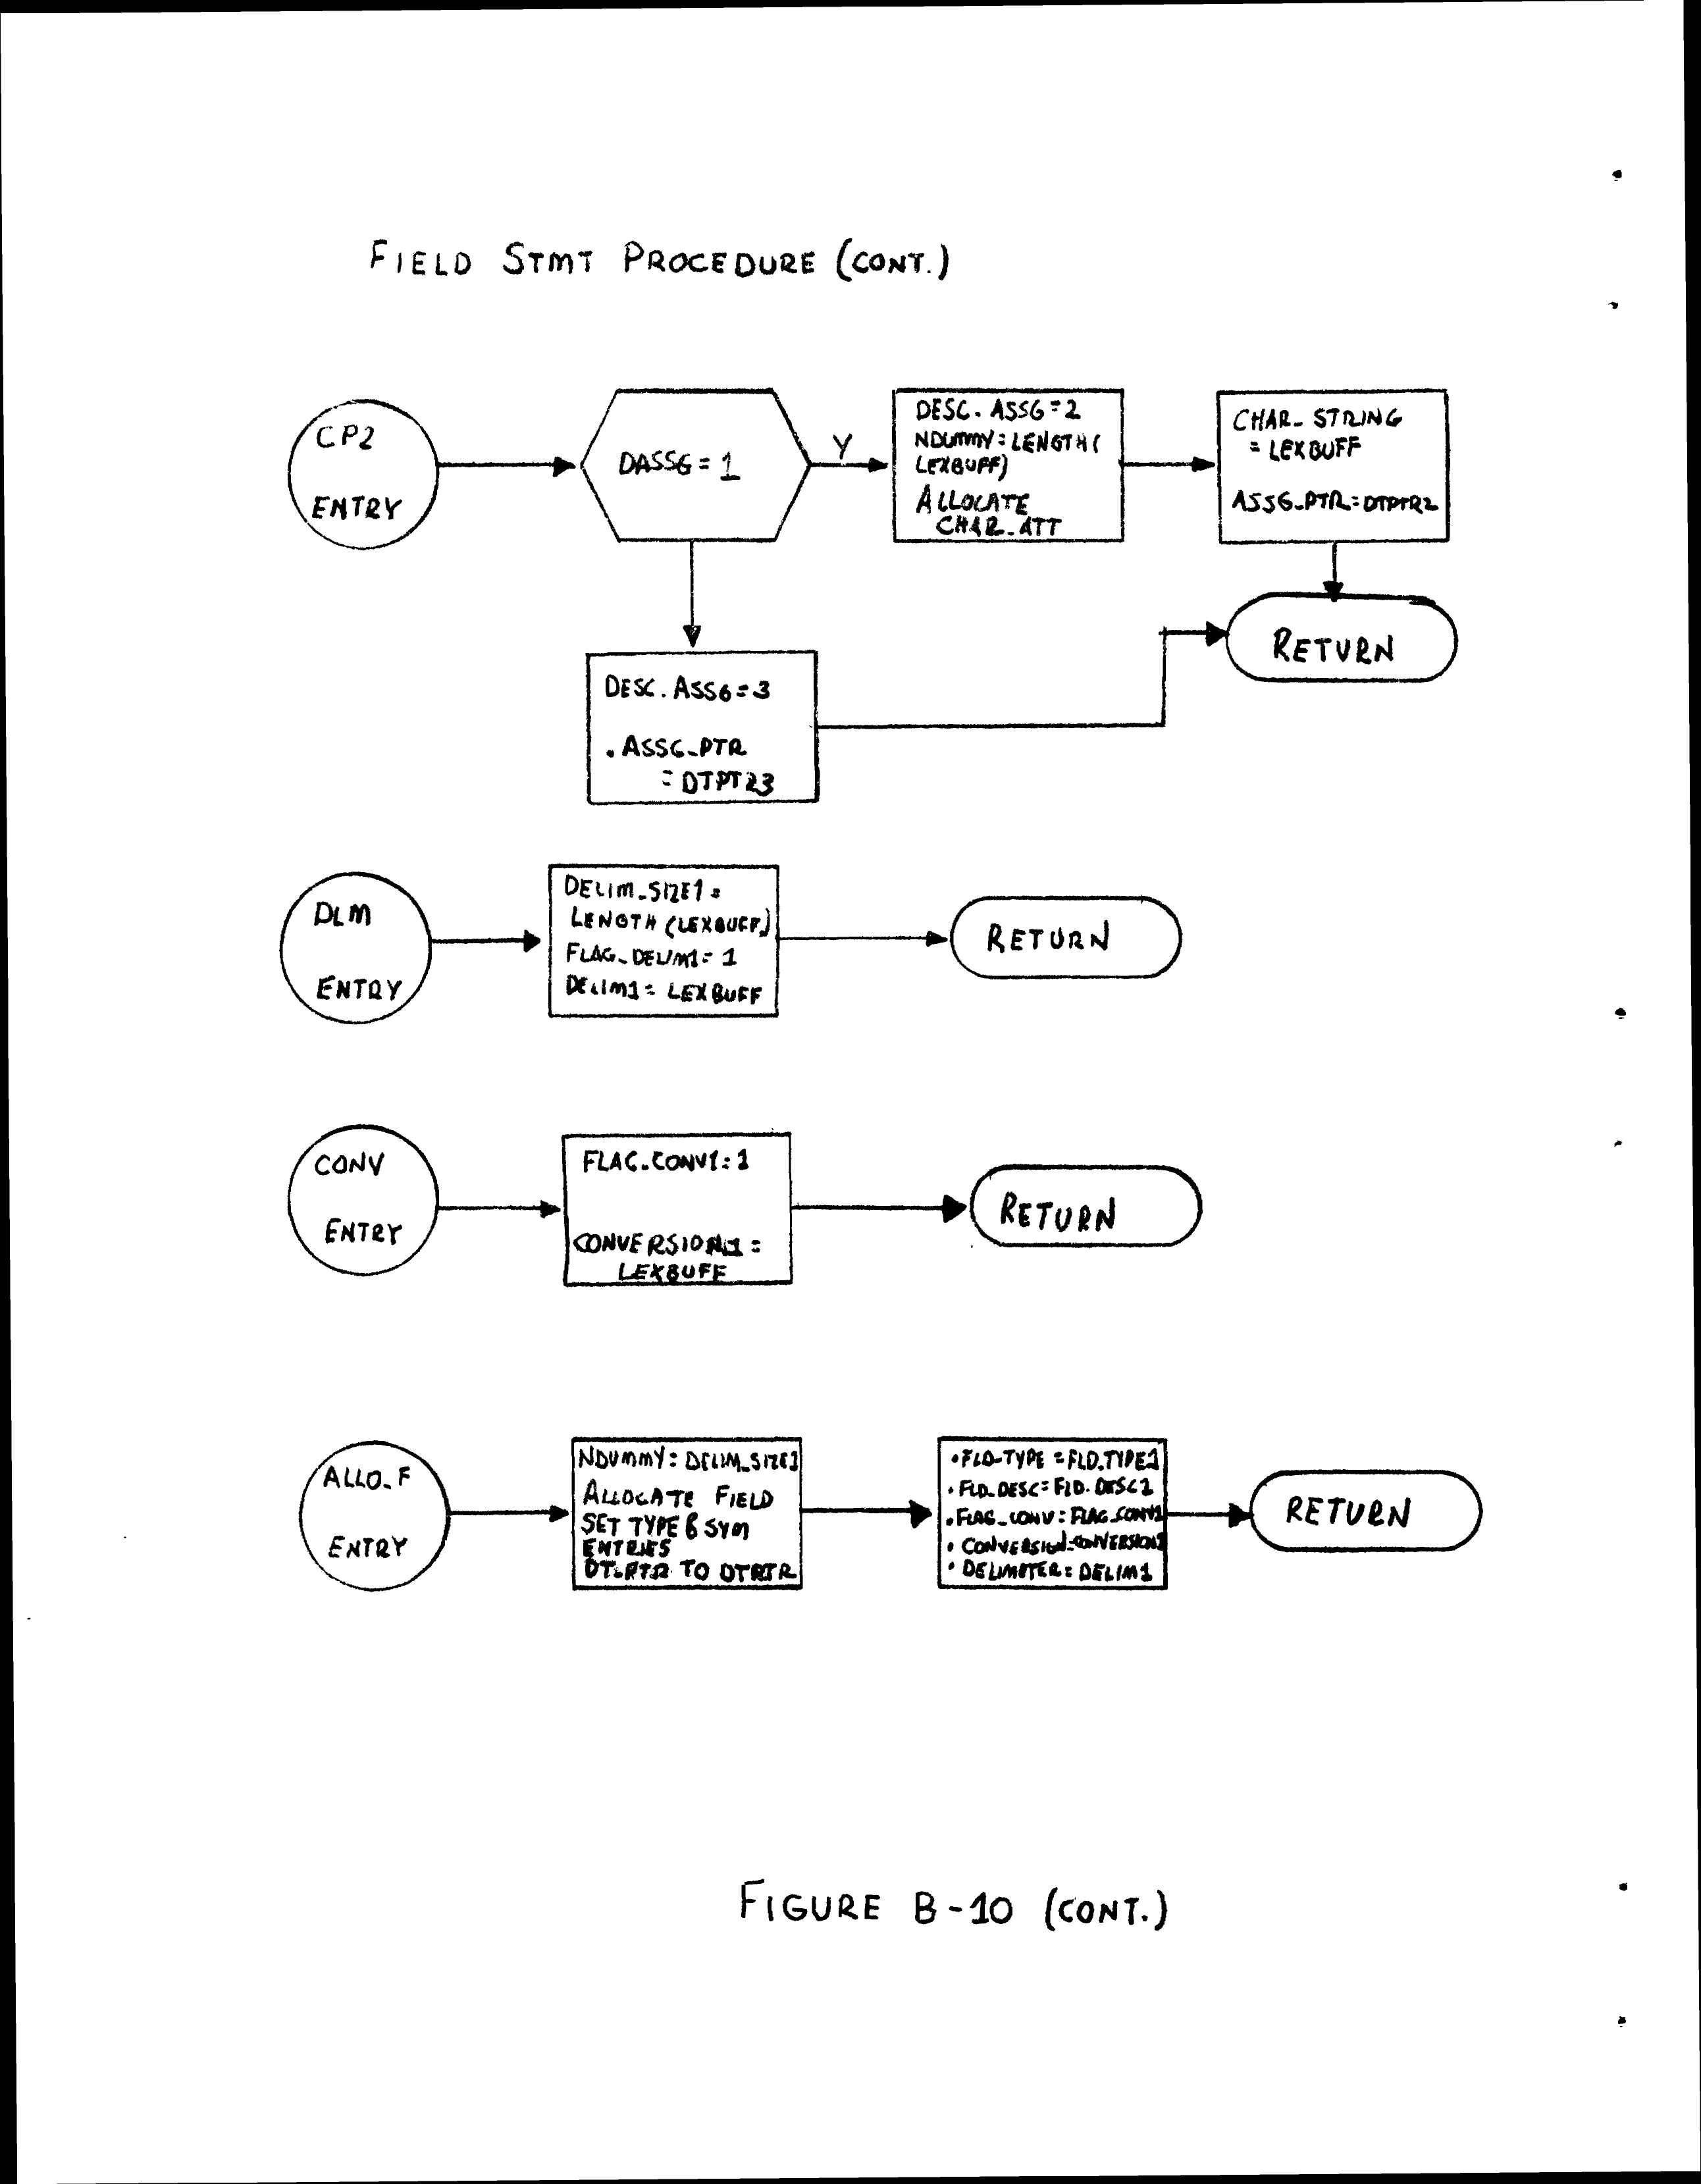 FIELD STMT PROCEDURE (CONT.)
CP2
ENTRY
DASSG = 1
Y
DESC. ASSG = 2
NDUMMY = LENGTH (
LEXBUFF)
ALLOCATE
CHAR_ATT
CHAR_ STRING
= LEXBUFF
ASSG_PTR = DTPTR2
RETURN
DESC. ASSG = 3
. ASSG_PTR
= DTPTR3
DLM
ENTRY
DELIM_SIZE1 =
LENGTH (LEXBUFF)
FLAG_DELIM1 = 1
DELIM1 = LEXBUFF
RETURN
CONV
ENTRY
FLAG_CONV1 = 1
CONVERSION1 =
LEXBUFF
RETURN
ALLO_F
ENTRY
NDUMMY = DELIM_SIZE1
ALLOCATE FIELD
SET TYPE & SYM
ENTRIES
DT_PTR TO DTPTR
• FLD_TYPE = FLD_TYPE1
• FLD_DESC = FLD_DESC1
• FLAG_CONV = FLAG_CONV1
• CONVERSION=CONVERSION1
• DELIMITER = DELIM1
RETURN
FIGURE B-10 (CONT.)